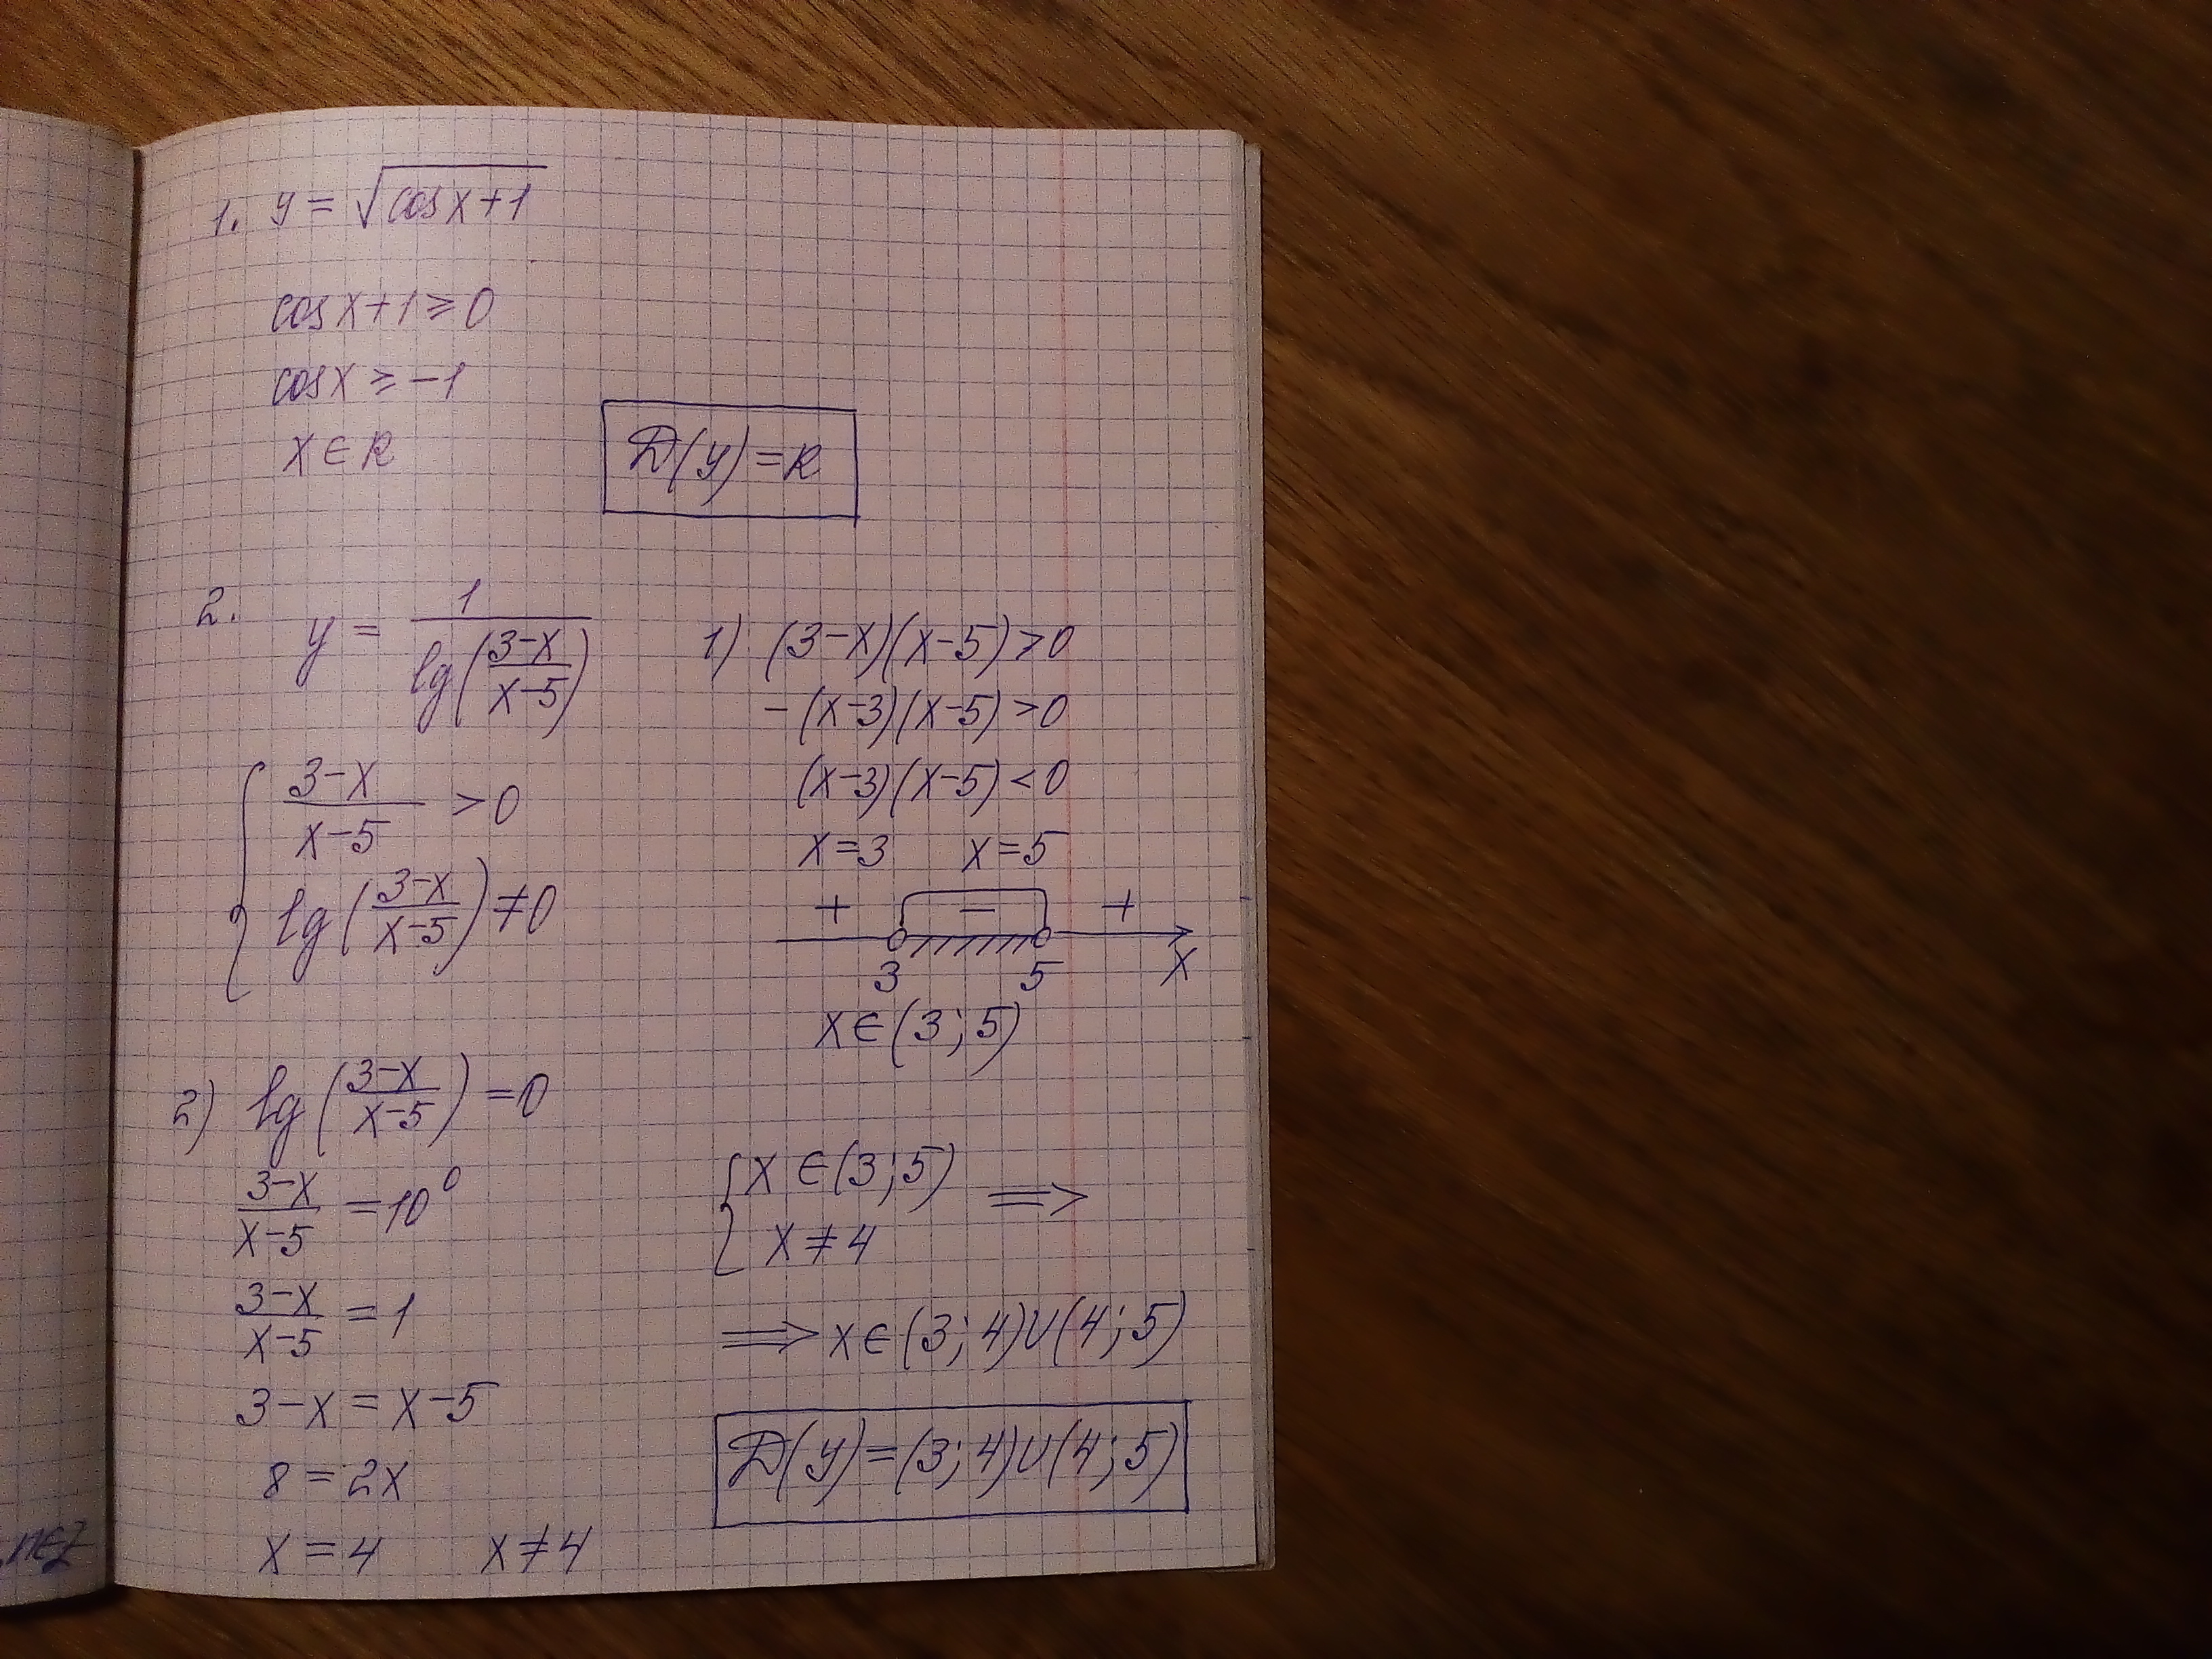 1. y = √(cos x + 1)
cos x + 1 ≥ 0
cos x ≥ -1
x ∈ R
D(y) = R
2. y = 1 / lg((3-x)/(x-5))
{ (3-x)/(x-5) > 0
lg((3-x)/(x-5)) ≠ 0
1) (3-x)(x-5) > 0
-(x-3)(x-5) > 0
(x-3)(x-5) < 0
x = 3 x = 5
+ - +
3 5 x
x ∈ (3; 5)
2) lg((3-x)/(x-5)) = 0
(3-x)/(x-5) = 10⁰
(3-x)/(x-5) = 1
3-x = x-5
8 = 2x
x = 4 x ≠ 4
{ x ∈ (3; 5) ⟹
x ≠ 4
⟹ x ∈ (3; 4) ∪ (4; 5)
D(y) = (3; 4) ∪ (4; 5)
, n∈Z